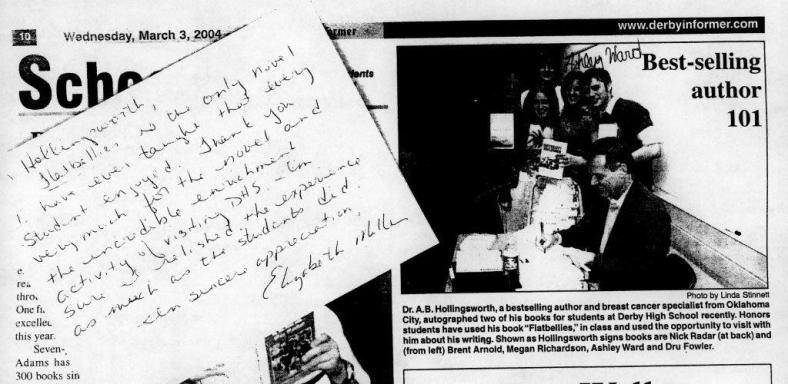 10
Wednesday, March 3, 2004
rmer
www.derbyinformer.com
Scho
ents
Hollingsworth,
Flatbellies is the only novel
I have ever taught that every
student enjoyed. Thank you
very much for the novel and
the incredible enrichment
activity of visiting DHS. I'm
sure I relished the experience
as much as the students did.
In sincere appreciation,
Elizabeth
e.
rea
thro
One fi
excellen
this year.
Seven-
Adams has
300 books sin
Ashley Ward
Best-selling
author
101
Photo by Linda Stinnett
Dr. A.B. Hollingsworth, a bestselling author and breast cancer specialist from Oklahoma
City, autographed two of his books for students at Derby High School recently. Honors
students have used his book "Flatbellies," in class and used the opportunity to visit with
him about his writing. Shown as Hollingsworth signs books are Nick Radar (at back) and
(from left) Brent Arnold, Megan Richardson, Ashley Ward and Dru Fowler.